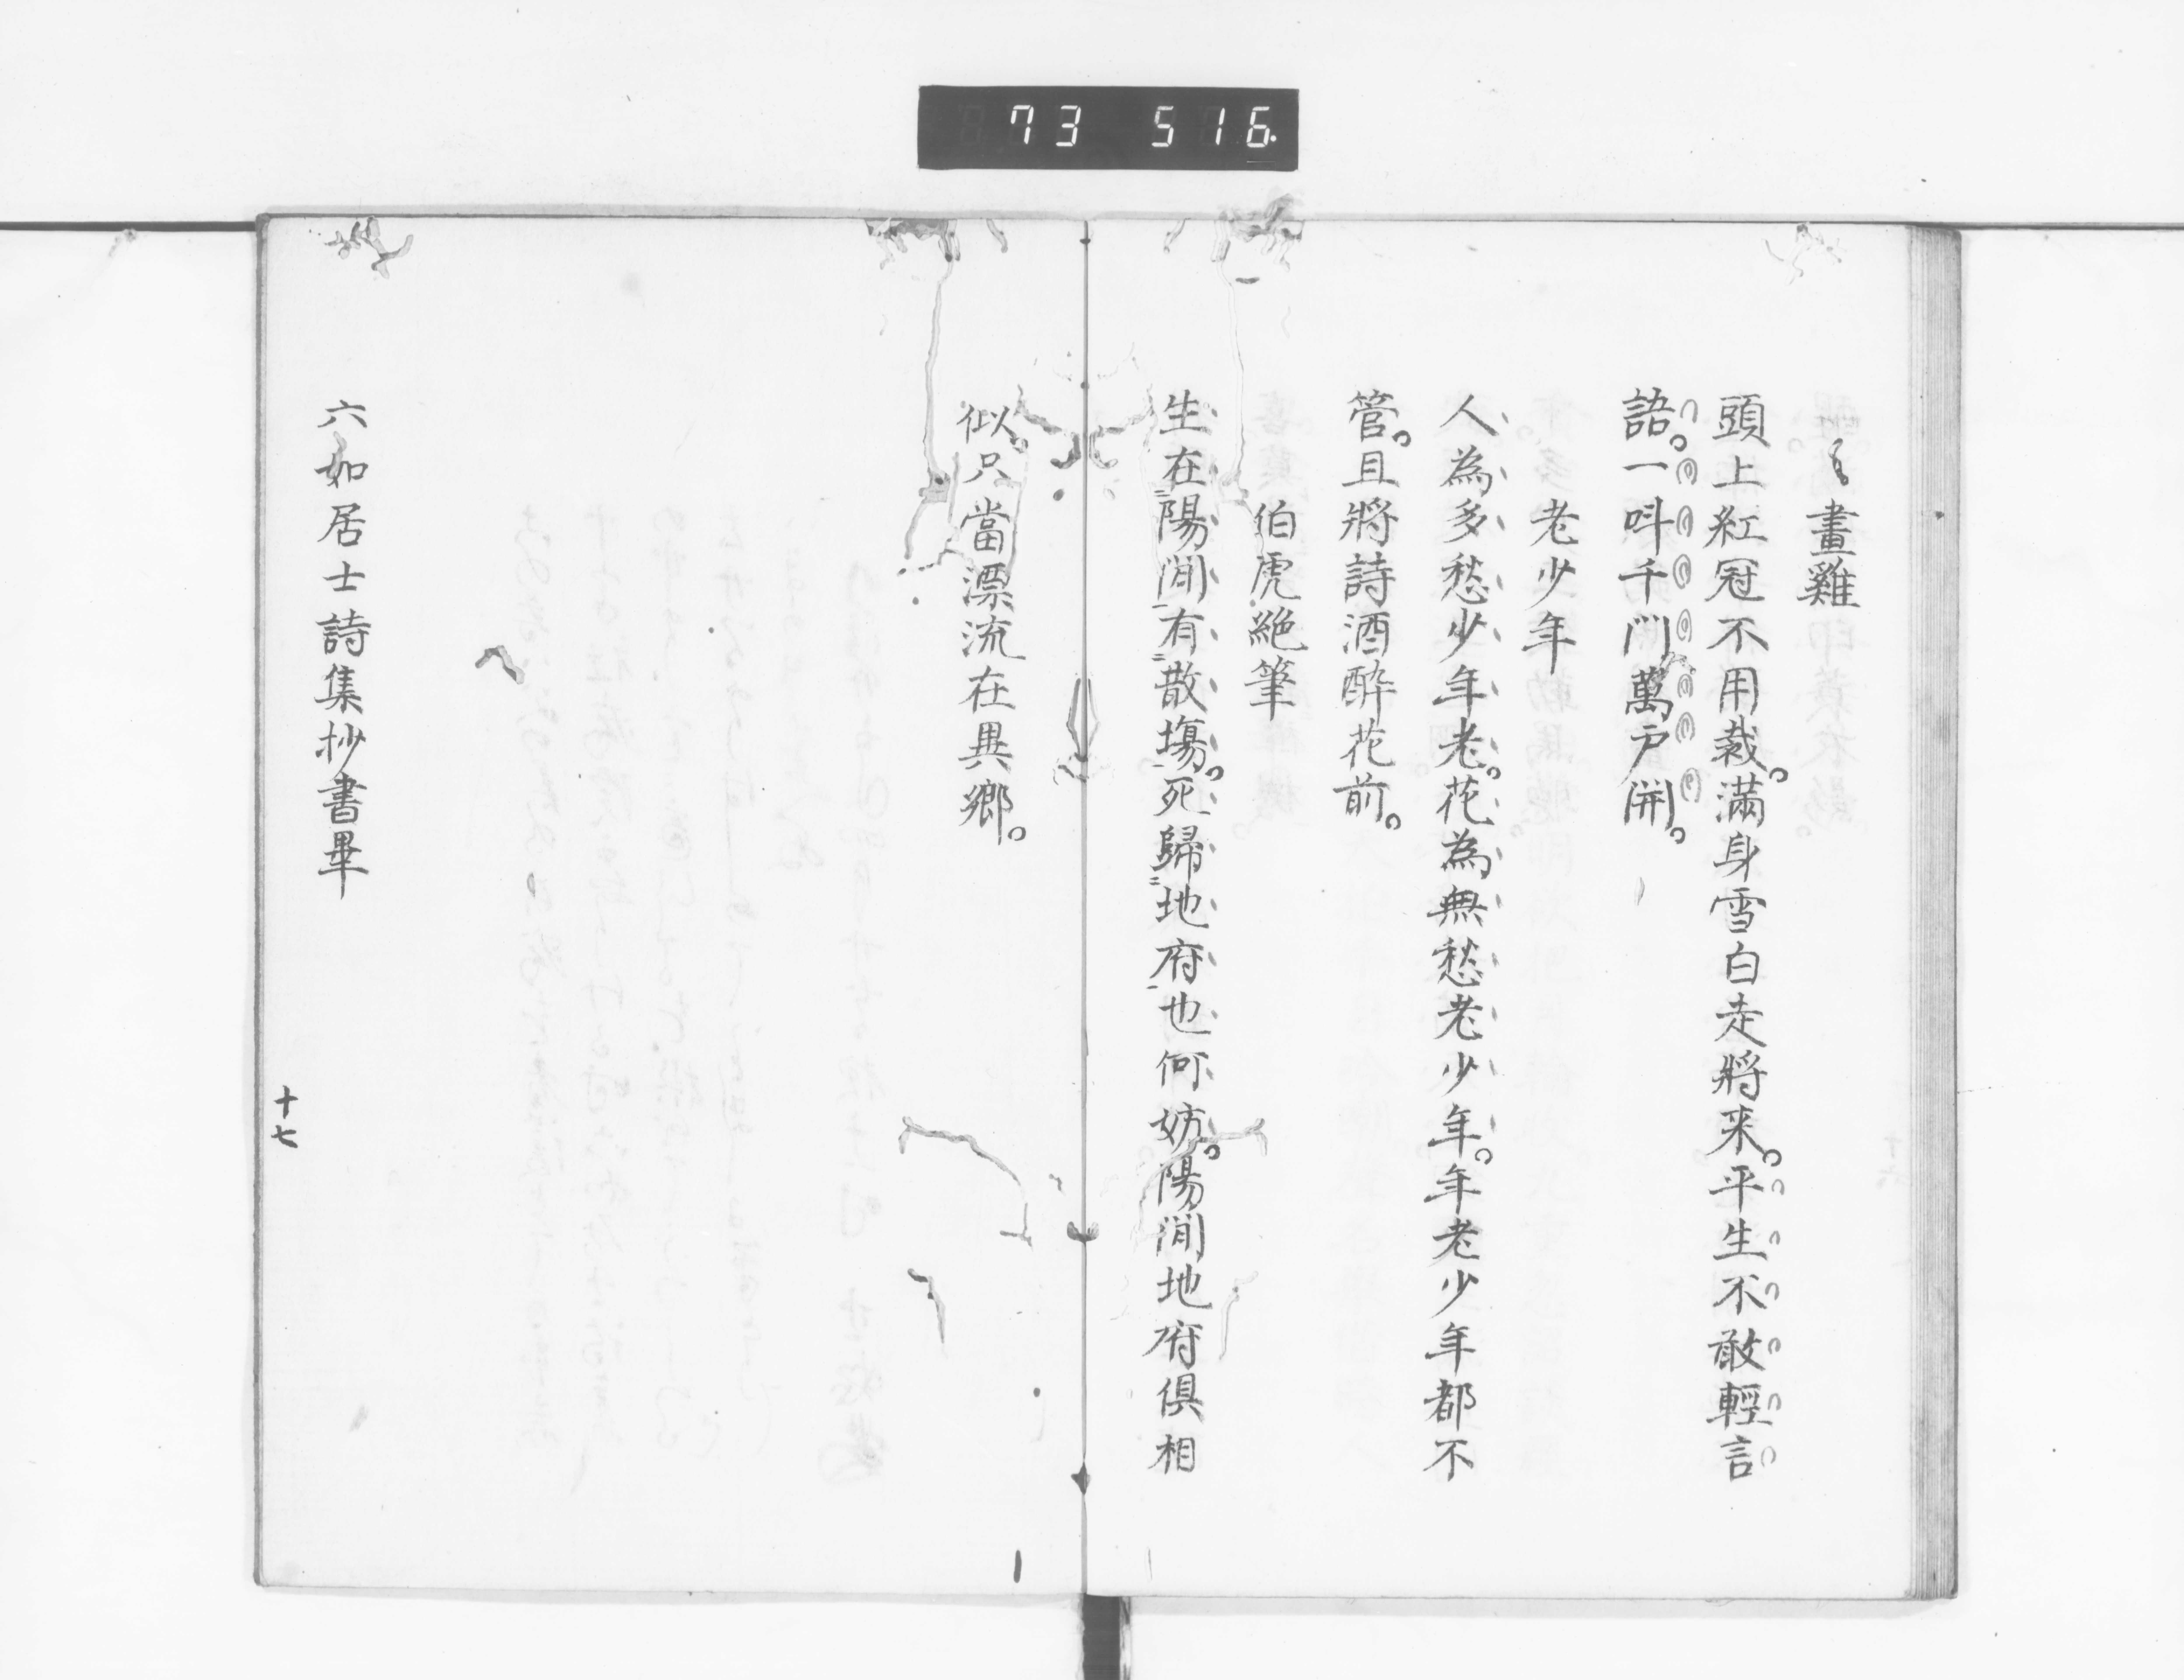 73 516
畫雞
頭上紅冠不用裁。滿身雪白走將来。平生不敢輕言
語。一呌千門萬戸開。
老少年
人為多愁少年老。花為無愁老少年。年老少年都不
管。且將詩酒醉花前。
伯虎絶筆
生在陽間有散塲。死歸地府也何妨。陽間地府俱相
似。只當漂流在異鄉。
六如居士詩集抄書畢
十七